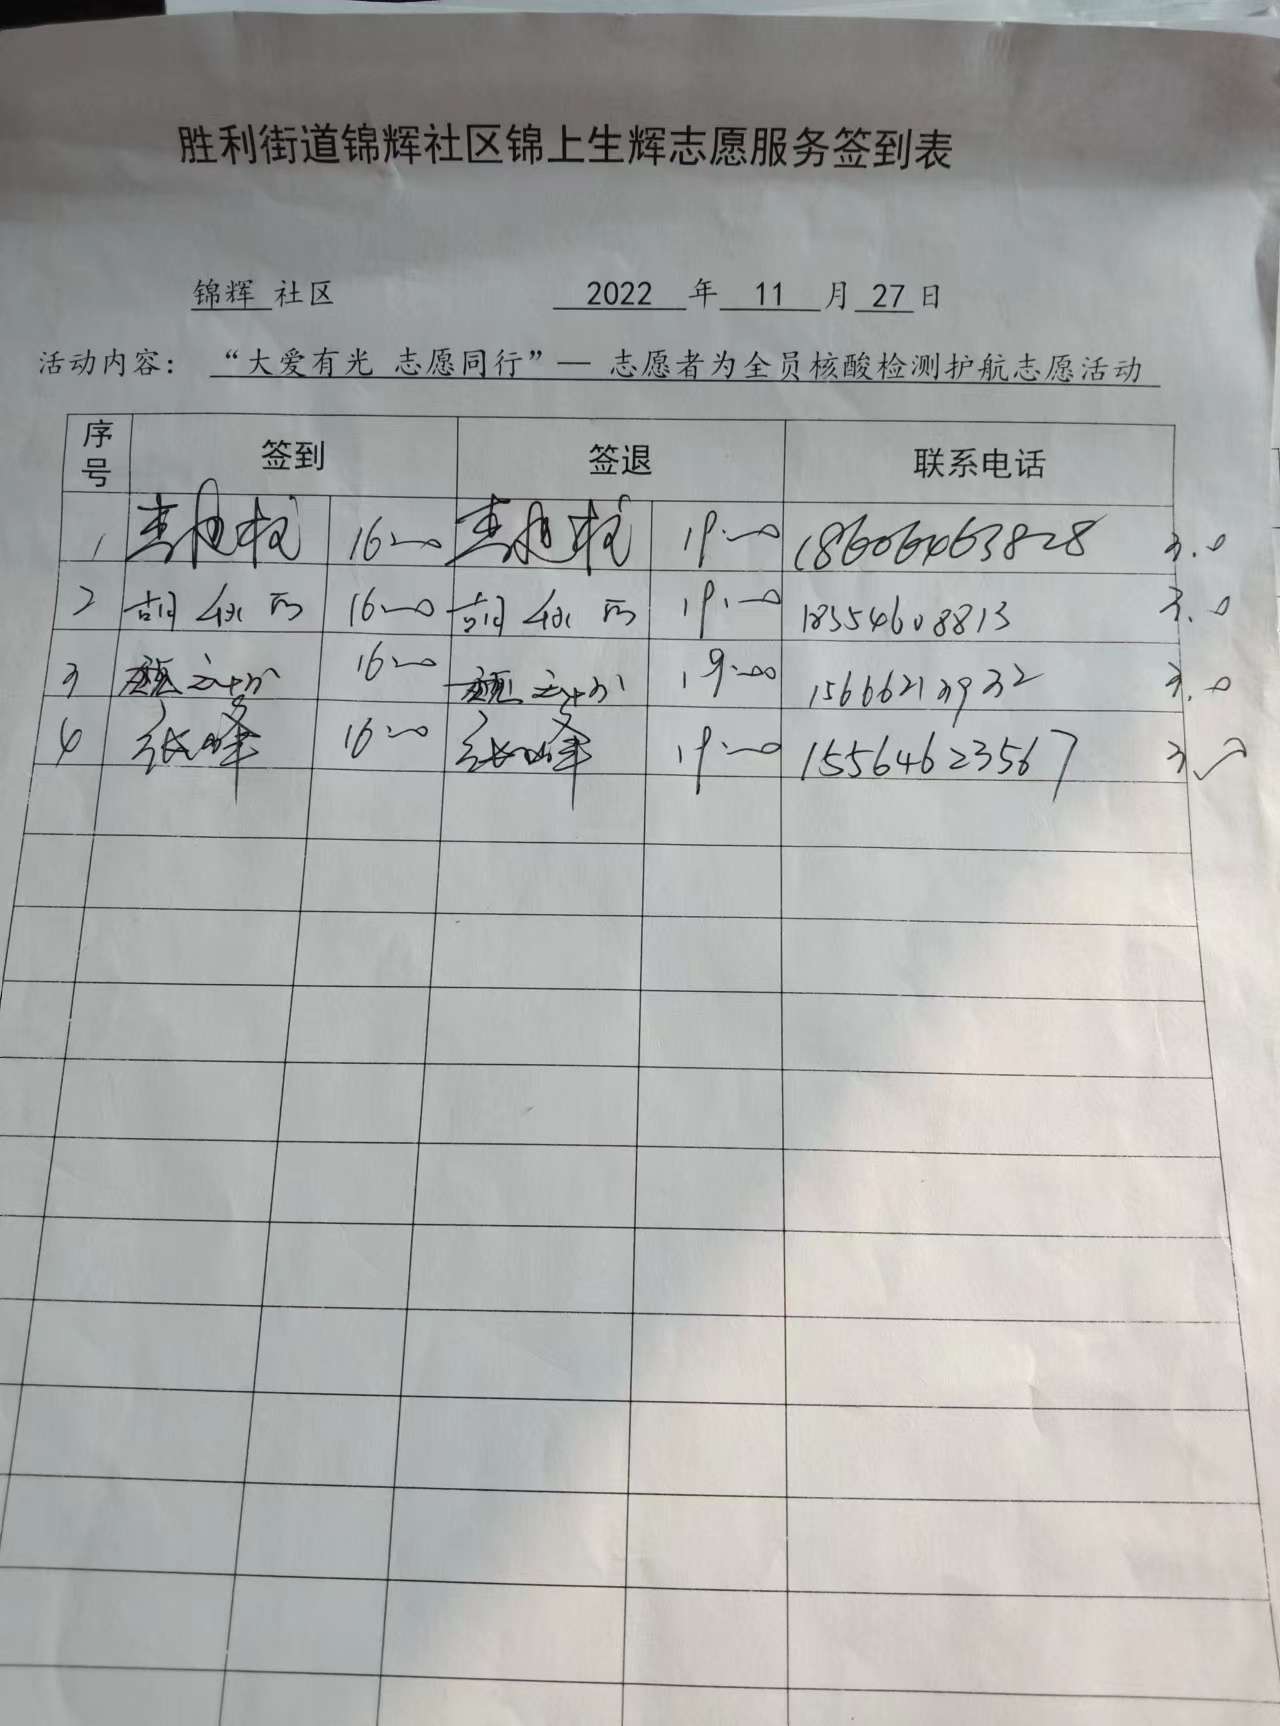 胜利街道锦辉社区锦上生辉志愿服务签到表
锦辉 社区 2022 年 11 月 27 日
活动内容： “大爱有光 志愿同行”— 志愿者为全员核酸检测护航志愿活动
序号 签到 签退 联系电话
1 16:00 19:00 3.0
2 胡秋丽 16:00 胡秋丽 19:00 18554608813 3.0
3 16:00 19:00 15666213932 3.0
4 张峰 16:00 张峰 19:00 15564623567 3